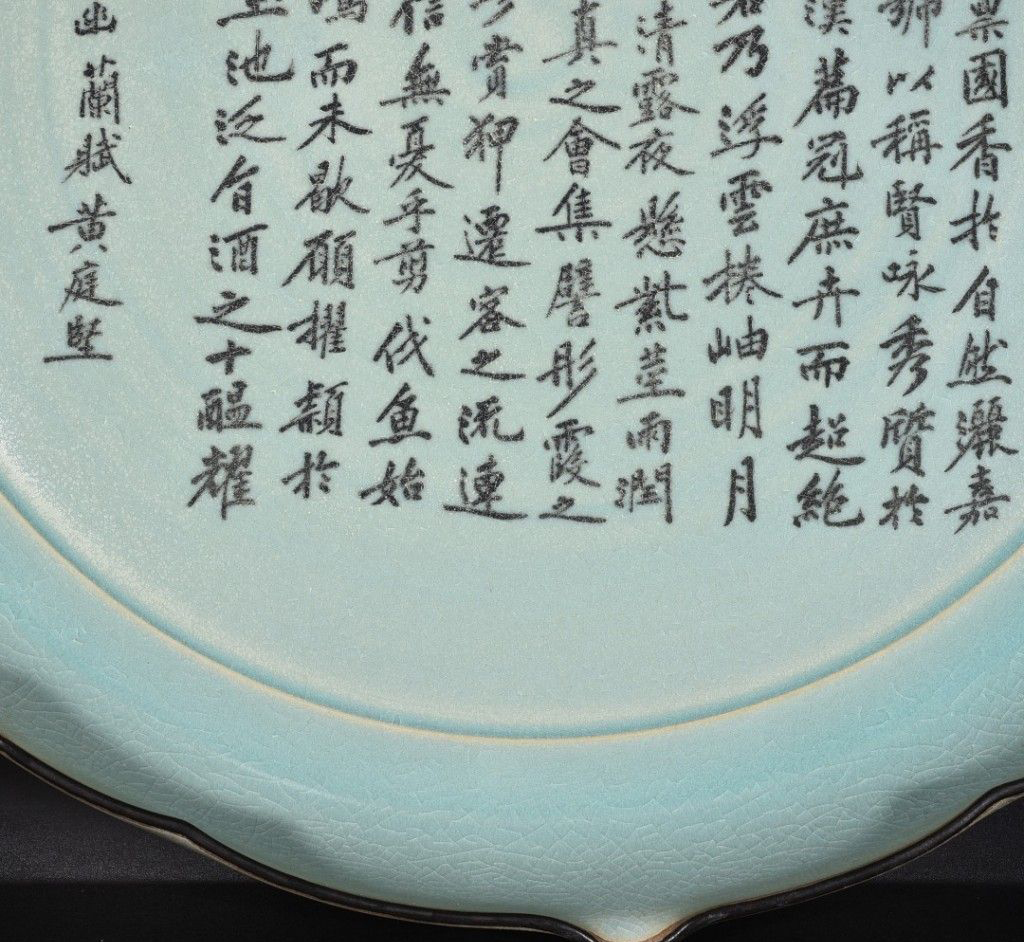 稟國香扵自然灑嘉
號以稱賢咏秀質扵
漢篇冠庶卉而超絕
若乃浮雲捲岫明月
清露夜懸紫莖雨潤
真之會集譬彤霞之
賞狎遷客之流連
信無憂乎剪伐魚始
鳴而未歇願擢穎扵
池泛旨酒之十醞耀
幽蘭賦黃庭堅